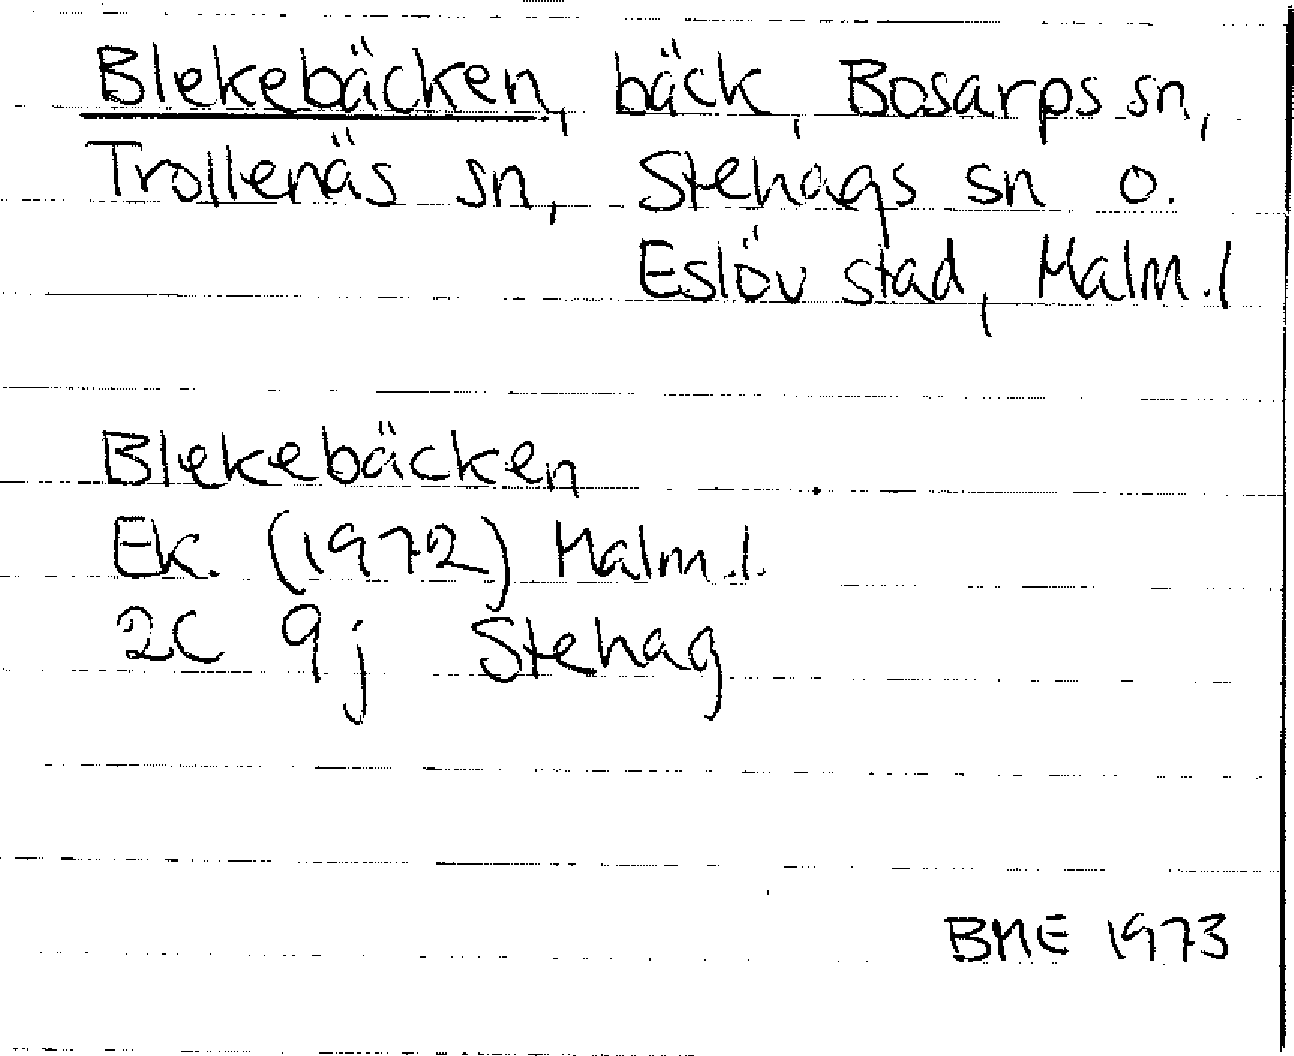 Blekebäcken, bäck, Bosarps sn,
Trollenäs sn, Stehags sn o.
Eslöv stad, Malm.l
Blekebäcken
Ek. (1972) Malm.l.
2C 9j Stehag
BME 1973